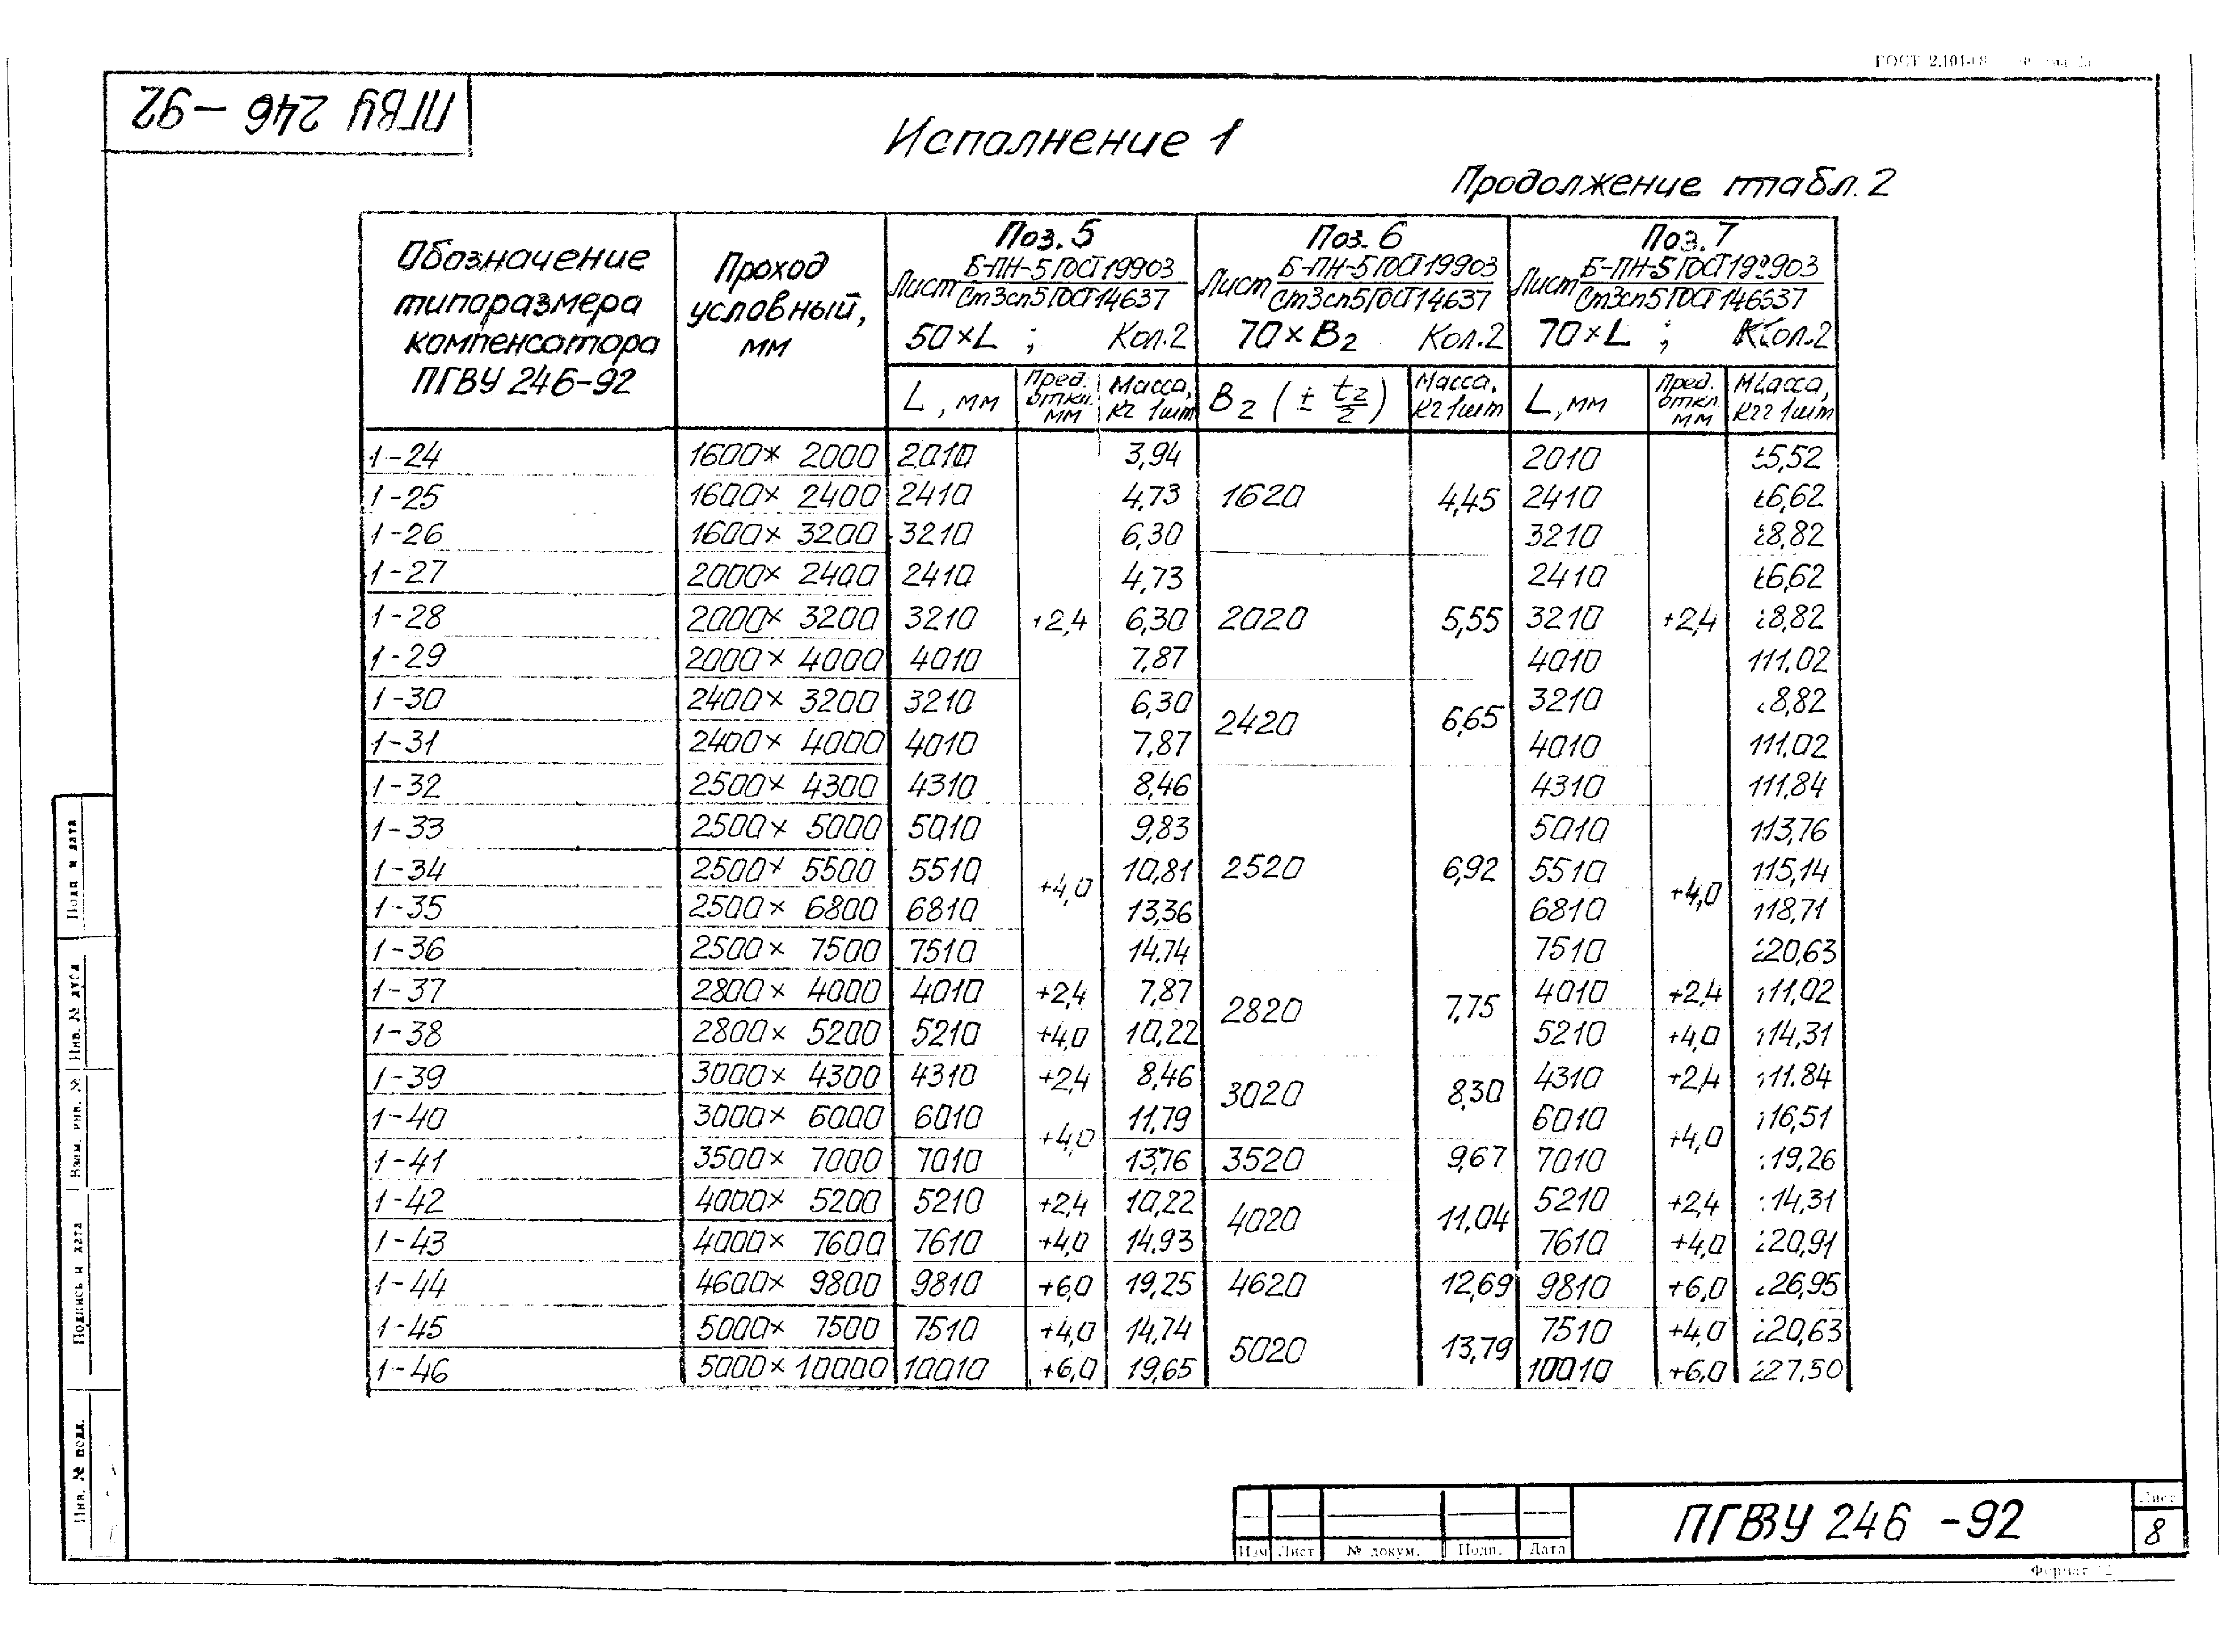 ГОСТ 2.104-68 Форма 2а
ПГВУ 246-92
Исполнение 1
Продолжение табл. 2
Обозначение типоразмера компенсатора ПГВУ 246-92
Проход условный, мм
Поз. 5
Лист Б-ПН-5 ГОСТ 19903 / Ст3сп5 ГОСТ 14637
50×L ; Кол. 2
Поз. 6
Лист Б-ПН-5 ГОСТ 19903 / Ст3сп5 ГОСТ 14637
70×B2 Кол. 2
Поз. 7
Лист Б-ПН-5 ГОСТ 19903 / Ст3сп5 ГОСТ 14637
70×L ; Кол. 2
L, мм Пред. откл. мм Масса, кг 1шт B2 (± t2/2) Масса, кг 1шт L, мм Пред. откл. мм Масса, кг 1шт
1-24 1600×2000 2010 3,94 2010 5,52
1-25 1600×2400 2410 4,73 1620 4,45 2410 6,62
1-26 1600×3200 3210 6,30 3210 8,82
1-27 2000×2400 2410 4,73 2410 6,62
1-28 2000×3200 3210 +2,4 6,30 2020 5,55 3210 +2,4 8,82
1-29 2000×4000 4010 7,87 4010 11,02
1-30 2400×3200 3210 6,30 2420 6,65 3210 8,82
1-31 2400×4000 4010 7,87 4010 11,02
1-32 2500×4300 4310 8,46 4310 11,84
1-33 2500×5000 5010 9,83 5010 13,76
1-34 2500×5500 5510 +4,0 10,81 2520 6,92 5510 +4,0 15,14
1-35 2500×6800 6810 13,36 6810 18,71
1-36 2500×7500 7510 14,74 7510 20,63
1-37 2800×4000 4010 +2,4 7,87 2820 7,75 4010 +2,4 11,02
1-38 2800×5200 5210 +4,0 10,22 5210 +4,0 14,31
1-39 3000×4300 4310 +2,4 8,46 3020 8,30 4310 +2,4 11,84
1-40 3000×6000 6010 +4,0 11,79 6010 +4,0 16,51
1-41 3500×7000 7010 13,76 3520 9,67 7010 19,26
1-42 4000×5200 5210 +2,4 10,22 4020 11,04 5210 +2,4 14,31
1-43 4000×7600 7610 +4,0 14,93 7610 +4,0 20,91
1-44 4600×9800 9810 +6,0 19,25 4620 12,69 9810 +6,0 26,95
1-45 5000×7500 7510 +4,0 14,74 5020 13,79 7510 +4,0 20,63
1-46 5000×10000 10010 +6,0 19,65 10010 +6,0 27,50
Подп и дата
Инв. № дубл
Взам. инв. №
Подпись и дата
Инв. № подл.
Изм Лист № докум. Подп. Дата
ПГВУ 246-92
Лист
8
Формат